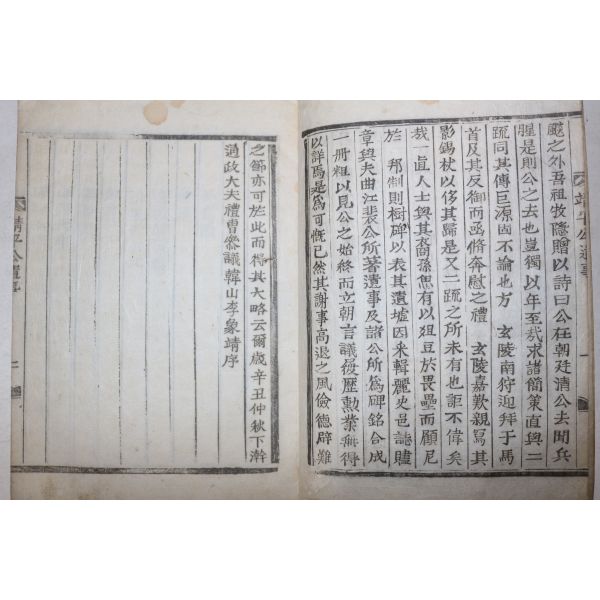 颷之外吾祖牧隱贈以詩曰公在朝廷清公去聞兵
腥是則公之去也豈獨以年至哉求諸簡策直與二
疏同其傳巨源固不論也方 玄陵南狩迎拜于馬
首及其反御而函脩奔慰之禮 玄陵嘉歎親寫其
影錫杖以侈其歸是又二疏之所未有也詎不偉矣
哉一直人士與其裔孫思有以俎豆於畏壘而顧尼
於 邦制則樹碑以表其遺墟因來輯麗史邑誌贐
章與夫曲江裴公所著遺事及諸公所爲碑銘合成
一册粗以見公之始終而立朝言議優歷勲業無得
以詳焉是爲可慨已然其謝事高退之風儉德辟難
之節亦可於此而得其大略云爾歲辛丑仲秋下澣
通政大夫禮曹參議韓山李象靖序
靖平公遺事
一
靖平公遺事
二